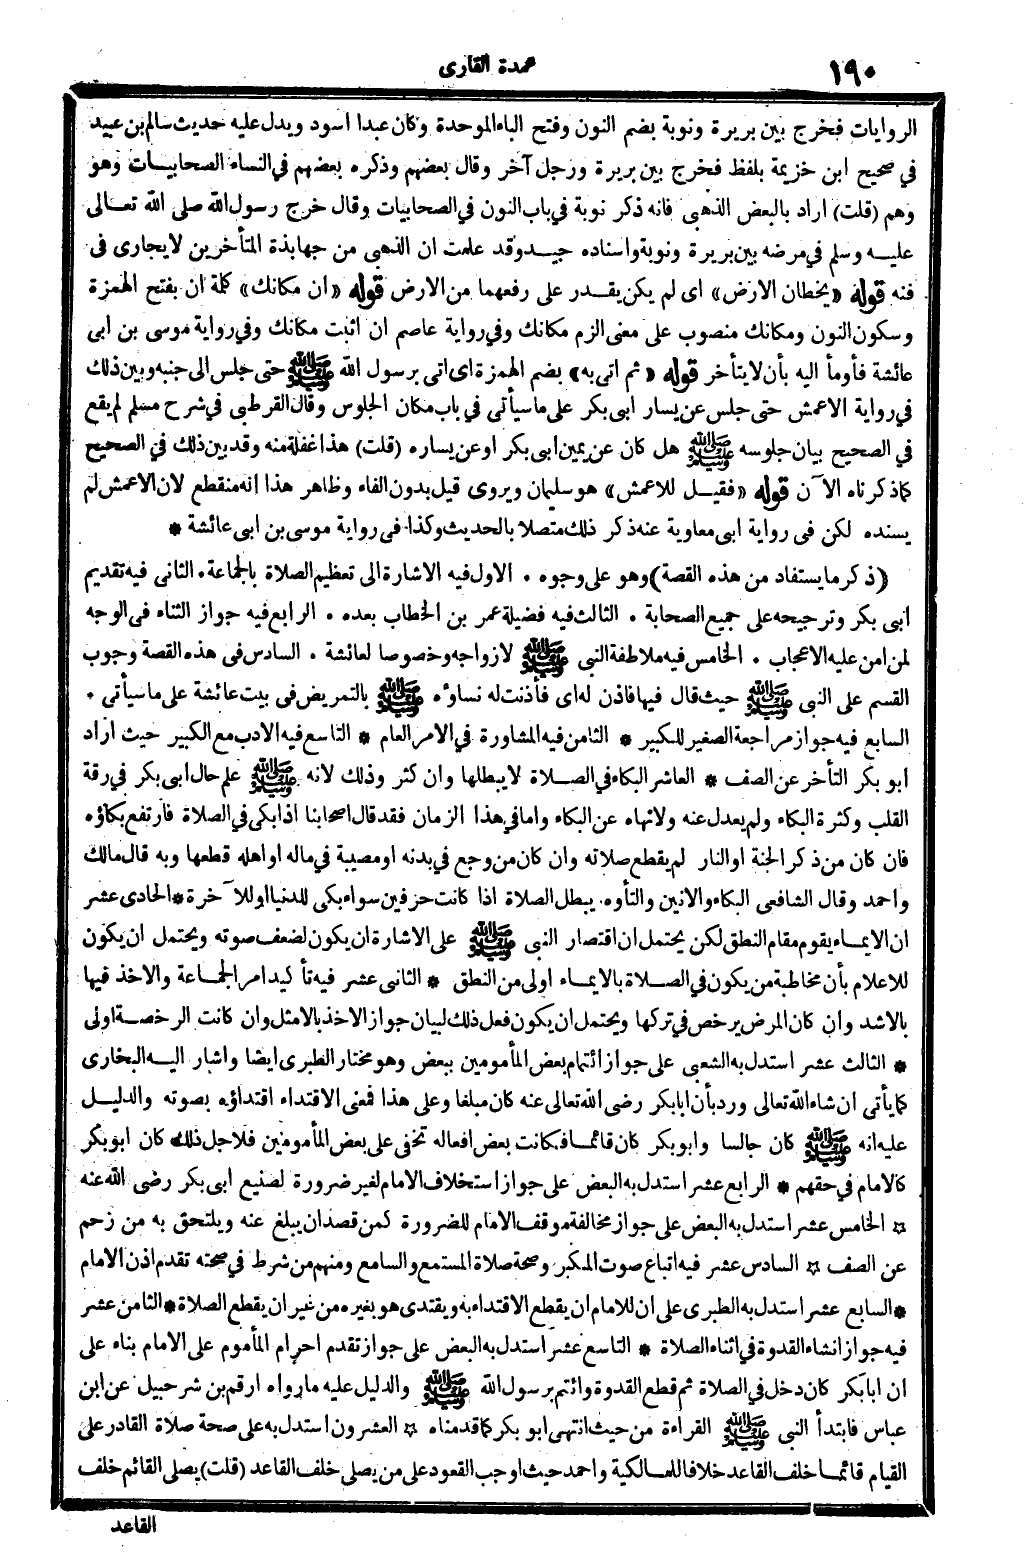 ١٩٠
عمدة القارى
الروايات فخرج بين بريرة ونوبة بضم النون وفتح الباء الموحدة وكان عبدا اسود ويدل عليه حديث سالم بن عبيد
في صحيح ابن خزيمة بلفظ فخرج بين بريرة ورجل آخر وقال بعضهم وذكره بعضهم في النساء الصحابيات وهو
وهم (قلت) اراد بالبعض الذهبى فانه ذكر نوبة في باب النون في الصحابيات وقال خرج رسول الله صلى الله تعالى
عليه وسلم في مرضه بين بريرة ونوبة واسناده جيد وقد علمت ان الذهبى من جهابذة المتأخرين لا يجارى فى
فنه قوله «يخطان الارض» اى لم يكن يقدر على رفعهما من الارض قوله «ان مكانك» كلمة ان بفتح الهمزة
وسكون النون ومكانك منصوب على معنى الزم مكانك وفي رواية عاصم ان اثبت مكانك وفي رواية موسى بن ابى
عائشة فأومأ اليه بأن لا يتأخر قوله «ثم اتى به» بضم الهمزة اى اتى برسول الله ﷺ حتى جلس الى جنبه وبين ذلك
في رواية الاعمش حتى جلس عن يسار ابى بكر على ما سيأتى في باب مكان الجلوس وقال القرطبى في شرح مسلم لم يقع
في الصحيح بيان جلوسه ﷺ هل كان عن يمين ابى بكر او عن يساره (قلت) هذا غفلة منه وقد بين ذلك في الصحيح
كما ذكرناه الآن قوله «فقيل للاعمش» هو سليمان ويروى قيل بدون الفاء وظاهر هذا انه منقطع لان الاعمش لم
يسنده لكن فى رواية ابى معاوية عنه ذكر ذلك متصلا بالحديث وكذا فى رواية موسى بن ابى عائشة *
(ذكر ما يستفاد من هذه القصة) وهو على وجوه . الاول فيه الاشارة الى تعظيم الصلاة بالجماعة . الثانى فيه تقديم
ابى بكر وترجيحه على جميع الصحابة . الثالث فيه فضيلة عمر بن الخطاب بعده . الرابع فيه جواز الثناء فى الوجه
لمن امن عليه الاعجاب . الخامس فيه ملاطفة النبى ﷺ لازواجه وخصوصا لعائشة . السادس فى هذه القصة وجوب
القسم على النبى ﷺ حيث قال فيها فاذن له اى فأذنت له نساؤه ﷺ بالتمريض فى بيت عائشة على ما سيأتى .
السابع فيه جواز مراجعة الصغير للكبير * الثامن فيه المشاورة في الامر العام * التاسع فيه الادب مع الكبير حيث اراد
ابو بكر التأخر عن الصف * العاشر البكاء في الصلاة لا يبطلها وان كثر وذلك لانه ﷺ علم حال ابى بكر في رقة
القلب وكثرة البكاء ولم يعدل عنه ولا نهاه عن البكاء واما في هذا الزمان فقد قال اصحابنا اذا بكى في الصلاة فارتفع بكاؤه
فان كان من ذكر الجنة او النار لم يقطع صلاته وان كان من وجع في بدنه او مصيبة في ماله او اهله قطعها وبه قال مالك
واحمد وقال الشافعى البكاء والانين والتأوه يبطل الصلاة اذا كانت حرفين سواء بكى للدنيا او للآخرة * الحادى عشر
ان الايماء يقوم مقام النطق لكن يحتمل ان اقتصار النبى ﷺ على الاشارة ان يكون لضعف صوته ويحتمل ان يكون
للاعلام بأن مخاطبة من يكون في الصلاة بالايماء اولى من النطق * الثانى عشر فيه تأكيد امر الجماعة والاخذ فيها
بالاشد وان كان المرض يرخص في تركها ويحتمل ان يكون فعل ذلك لبيان جواز الاخذ بالامثل وان كانت الرخصة اولى
* الثالث عشر استدل به الشعبى على جواز ائتمام بعض المأمومين ببعض وهو مختار الطبرى ايضا واشار اليه البخارى
كما يأتى ان شاء الله تعالى ورد بأن ابا بكر رضى الله تعالى عنه كان مبلغا وعلى هذا فمعنى الاقتداء اقتداؤه بصوته والدليل
عليه انه ﷺ كان جالسا وابو بكر كان قائما فكانت بعض افعاله تخفى على بعض المأمومين فلاجل ذلك كان ابو بكر
كالامام في حقهم * الرابع عشر استدل به البعض على جواز استخلاف الامام لغير ضرورة لصنيع ابى بكر رضى الله عنه
* الخامس عشر استدل به البعض على جواز مخالفة موقف الامام للضرورة كمن قصد ان يبلغ عنه ويلتحق به من زحم
عن الصف * السادس عشر فيه اتباع صوت المكبر وصحة صلاة المستمع والسامع ومنهم من شرط في صحته تقدم اذن الامام
* السابع عشر استدل به الطبرى على ان للامام ان يقطع الاقتداء به ويقتدى هو بغيره من غير ان يقطع الصلاة * الثامن عشر
فيه جواز انشاء القدوة في اثناء الصلاة * التاسع عشر استدل به البعض على جواز تقدم احرام المأموم على الامام بناء على
ان ابا بكر كان دخل في الصلاة ثم قطع القدوة وائتم برسول الله ﷺ والدليل عليه ما رواه ارقم بن شرحبيل عن ابن
عباس فابتدأ النبى ﷺ القراءة من حيث انتهى ابو بكر كما قدمناه * العشرون استدل به على صحة صلاة القادر على
القيام قائما خلف القاعد خلافا للمالكية واحمد حيث اوجب القعود على من يصلى خلف القاعد (قلت) يصلى القائم خلف
القاعد